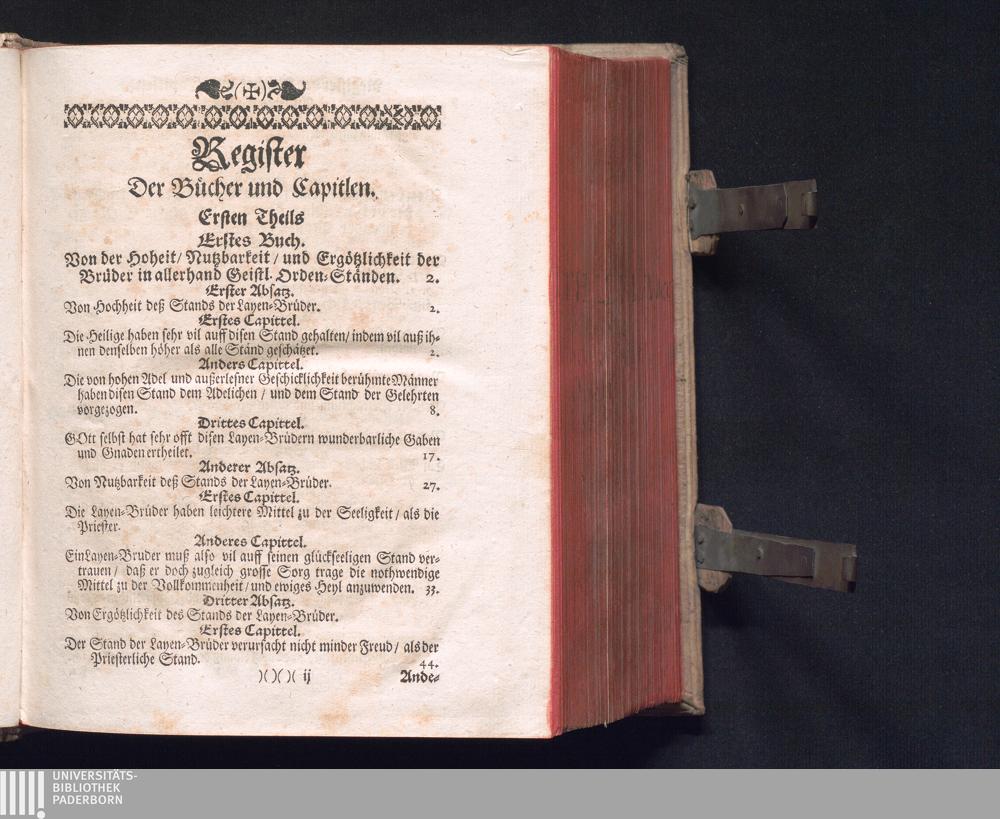 Register
Der Bücher und Capitlen.
Ersten Theils
Erstes Buch.
Von der Hoheit/ Nutzbarkeit/ und Ergötzlichkeit der
Brüder in allerhand Geistl. Orden-Ständen. 2.
Erster Absatz.
Von Hochheit deß Stands der Layen-Brüder. 2.
Erstes Capittel.
Die Heilige haben sehr vil auff disen Stand gehalten/ indem vil auß ih-
nen denselben höher als alle Ständ geschätzet. 2.
Anders Capittel.
Die von hohen Adel und außerlesner Geschicklichkeit berühmte Männer
haben disen Stand dem Adelichen/ und dem Stand der Gelehrten
vorgezogen. 8.
Drittes Capittel.
GOtt selbst hat sehr offt disen Layen-Brüdern wunderbarliche Gaben
und Gnaden ertheilet. 17.
Anderer Absatz.
Von Nutzbarkeit deß Stands der Layen-Brüder. 27.
Erstes Capittel.
Die Layen-Brüder haben leichtere Mittel zu der Seeligkeit/ als die
Priester.
Anderes Capittel.
Ein Layen-Bruder muß also vil auff seinen glückseeligen Stand ver-
trauen/ daß er doch zugleich grosse Sorg trage die nothwendige
Mittel zu der Vollkommenheit/ und ewiges Heyl anzuwenden. 33.
Dritter Absatz.
Von Ergötzlichkeit des Stands der Layen-Brüder.
Erstes Capittel.
Der Stand der Layen-Brüder verursacht nicht minder Freud/ als der
Priesterliche Stand. 44.
)( )( )( ij Ande-
UNIVERSITÄTS-
BIBLIOTHEK
PADERBORN